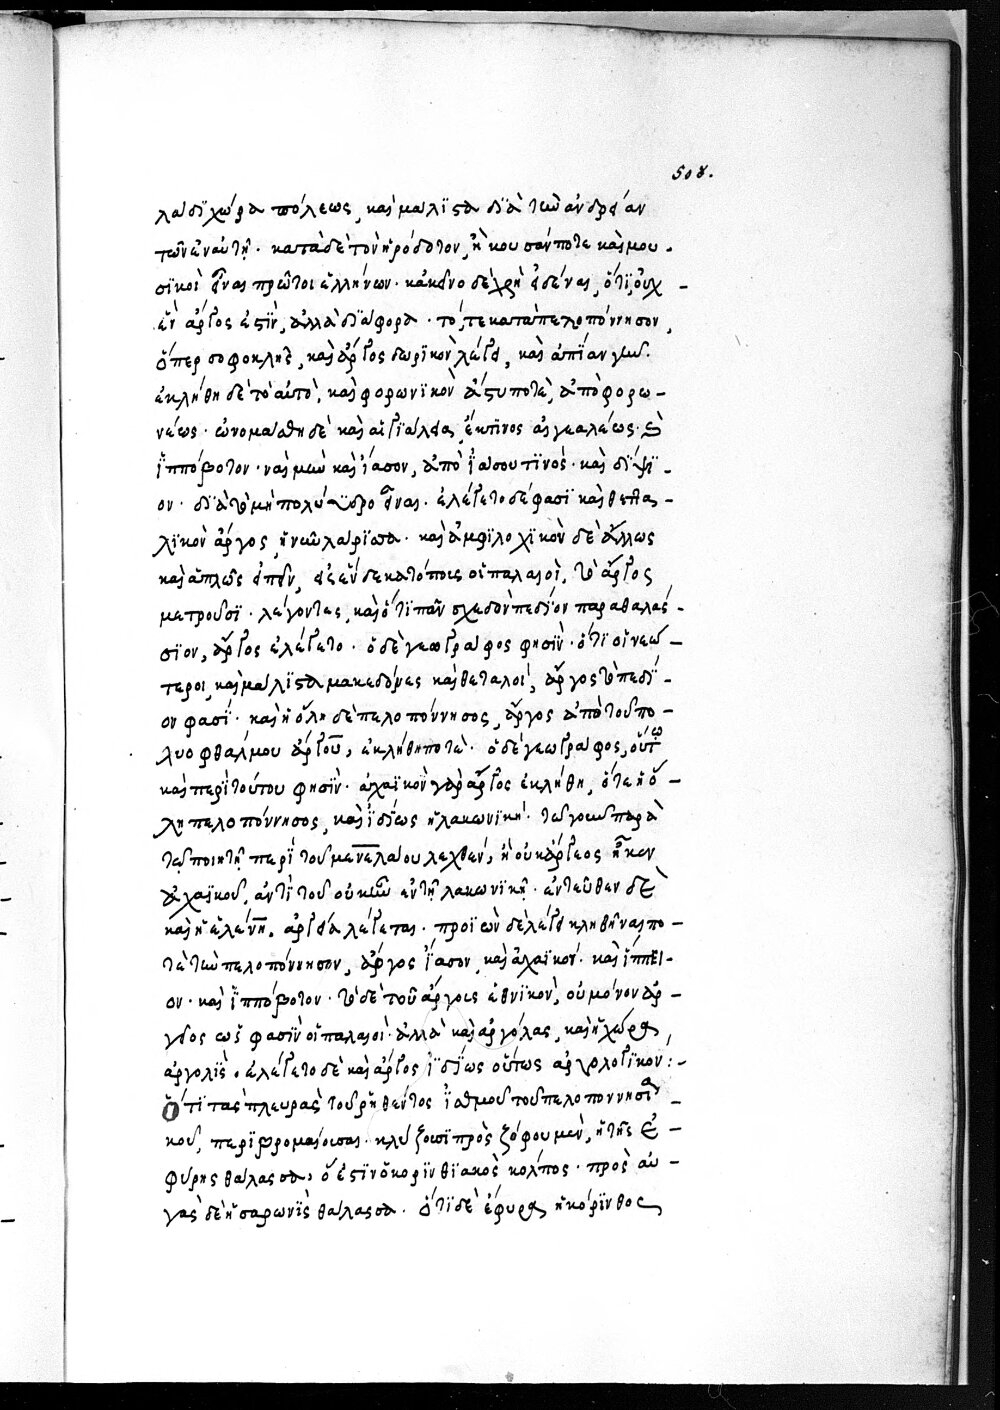 508.
λαι δϊ χώρα πόλεως, καὶ μάλιϊστα δϊὰ τὼν ἀνδρείαν
τῶν ἐν αὐτῇ· κατὰ δὲ τὸν ἡρόδοτον, ἤκουσάν ποτε καὶ μου-
σϊκοὶ εἶναι πρῶτοι ἑλλήνων· κἀκεῖνο δὲ χρὴ εἰδέναι, ὅτϊ, οὐχ
ἓν ἄργος ἐστϊν, ἀλλὰ δϊάφορα· τό, τε κατὰ πελοπόννησον,
ὅπερ σοφοκλῆς, καὶ ἄργος δωρϊκὸν λέγει, καὶ ἀπϊαν γῆν.
ἐκλήθη δὲ τὸ αὐτὸ, καὶ φορωνϊκὸν ἄστυ ποτὲ, ἀπὸ φορω-
νέως· ὠνομάσθη δὲ καὶ αἰγϊάλεια, ἔκ τινος αἰγιαλέως· καὶ
ἵππόβοτον· ναὶ μὴν καὶ ἴασον, ἀπὸ ἰάσου τϊνός· καὶ δίψϊ-
ον· δϊὰ τὸ μὴ πολύϋδρον εἶναι. ἐλέγετο δέ φασϊ καὶ θετα-
λϊκὸν ἄργος, ἡ νῦν λάρϊσσα· καὶ ἀμφϊλοχϊκὸν δὲ ἄλλως
καὶ ἁπλῶς εἰπεῖν, εἰς ἕνδεκα τόποις οἱ παλαιοὶ, τὸ ἄργος
μετροῦσϊ· λέγοντες, καὶ ὅτϊ πᾶν σχεδὸν πεδϊον παραθαλάσ-
σϊον, ἄργος ἐλέγετο· ὁ δὲ γεωγράφος φησϊν· ὅτϊ οἱ νεώ-
τεροι, καὶ μάλϊστα μακεδόνες καὶ θεταλοὶ, ἄργος τὸ πεδϊ-
ον φασϊ· καὶ ἡ ὅλη δὲ πελοπόννησος, ἄργος ἀπὸ τοῦ πο-
λυοφθάλμου ἄργου, ἐκλήθη ποτέ· ὁ δὲ γεωγράφος, οὕτω
καὶ περὶ τούτου φησϊν· ἀχαϊκὸν γὰρ ἄργος ἐκλήθη, ὅτε ἡ ὅ-
λη πελοπόννησος, καὶ ἰδϊως ἡ λακωνϊκή· τὸ γοῦν παρὰ
τῷ ποιητῇ περὶ τοῦ μενελάου λεχθὲν, ἢ οὐκ ἄργεος ἦκεν
ἀχαϊκοῦ, ἀντὶ τοῦ οὐκ ἦν ἐν τῇ λακωνϊκῇ· ἐντεῦθεν δὲ
καὶ ἡ ἑλένη, ἀργεία λέγεται· προϊὼν δὲ λέγει κληθῆναι πο-
τὲ τὼν πελοπόννησον, ἄργος ἴασον, καὶ ἀχαϊκόν· καὶ ἵππει-
ον· καὶ ἵππόβοτον· τὸ δὲ τοῦ ἄργοις ἐθνϊκὸν, οὐ μόνον ἀρ-
γεῖος ὥς φασϊν οἱ παλαιοὶ· ἀλλὰ καὶ ἀργόλας, καὶ ἡ χώρα,
ἀργολὶς. ἐλέγετο δὲ καὶ ἄργος ἰδϊως οὕτως ἀργολογϊκον:-
Ὅτϊ τὰς πλευρὰς τοῦ ῥηθέντος ἰσθμοῦ τοῦ πελοποννησια-
κοῦ, περϊβρομάζουσαι κλύζουσϊ πρὸς ζόφου μὲν, ἡ τῆς ἐ-
φύρης θάλασσα, ὅ ἐστϊν ὁ κορϊνθϊακὸς κόλπος· πρὸς αὐ-
γὰς δὲ ἡ σαρωνὶς θάλασσα. ὅτϊ δὲ ἐφύρα ἡ κόρϊνθος